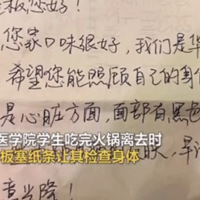 板您好!
您家口味很好,我们是华
希望您能照顾自己的身
是心脏方面,面部有黑色
医学院学生吃完火锅离去时
板塞纸条让其检查身体
肤,早
意兴隆!